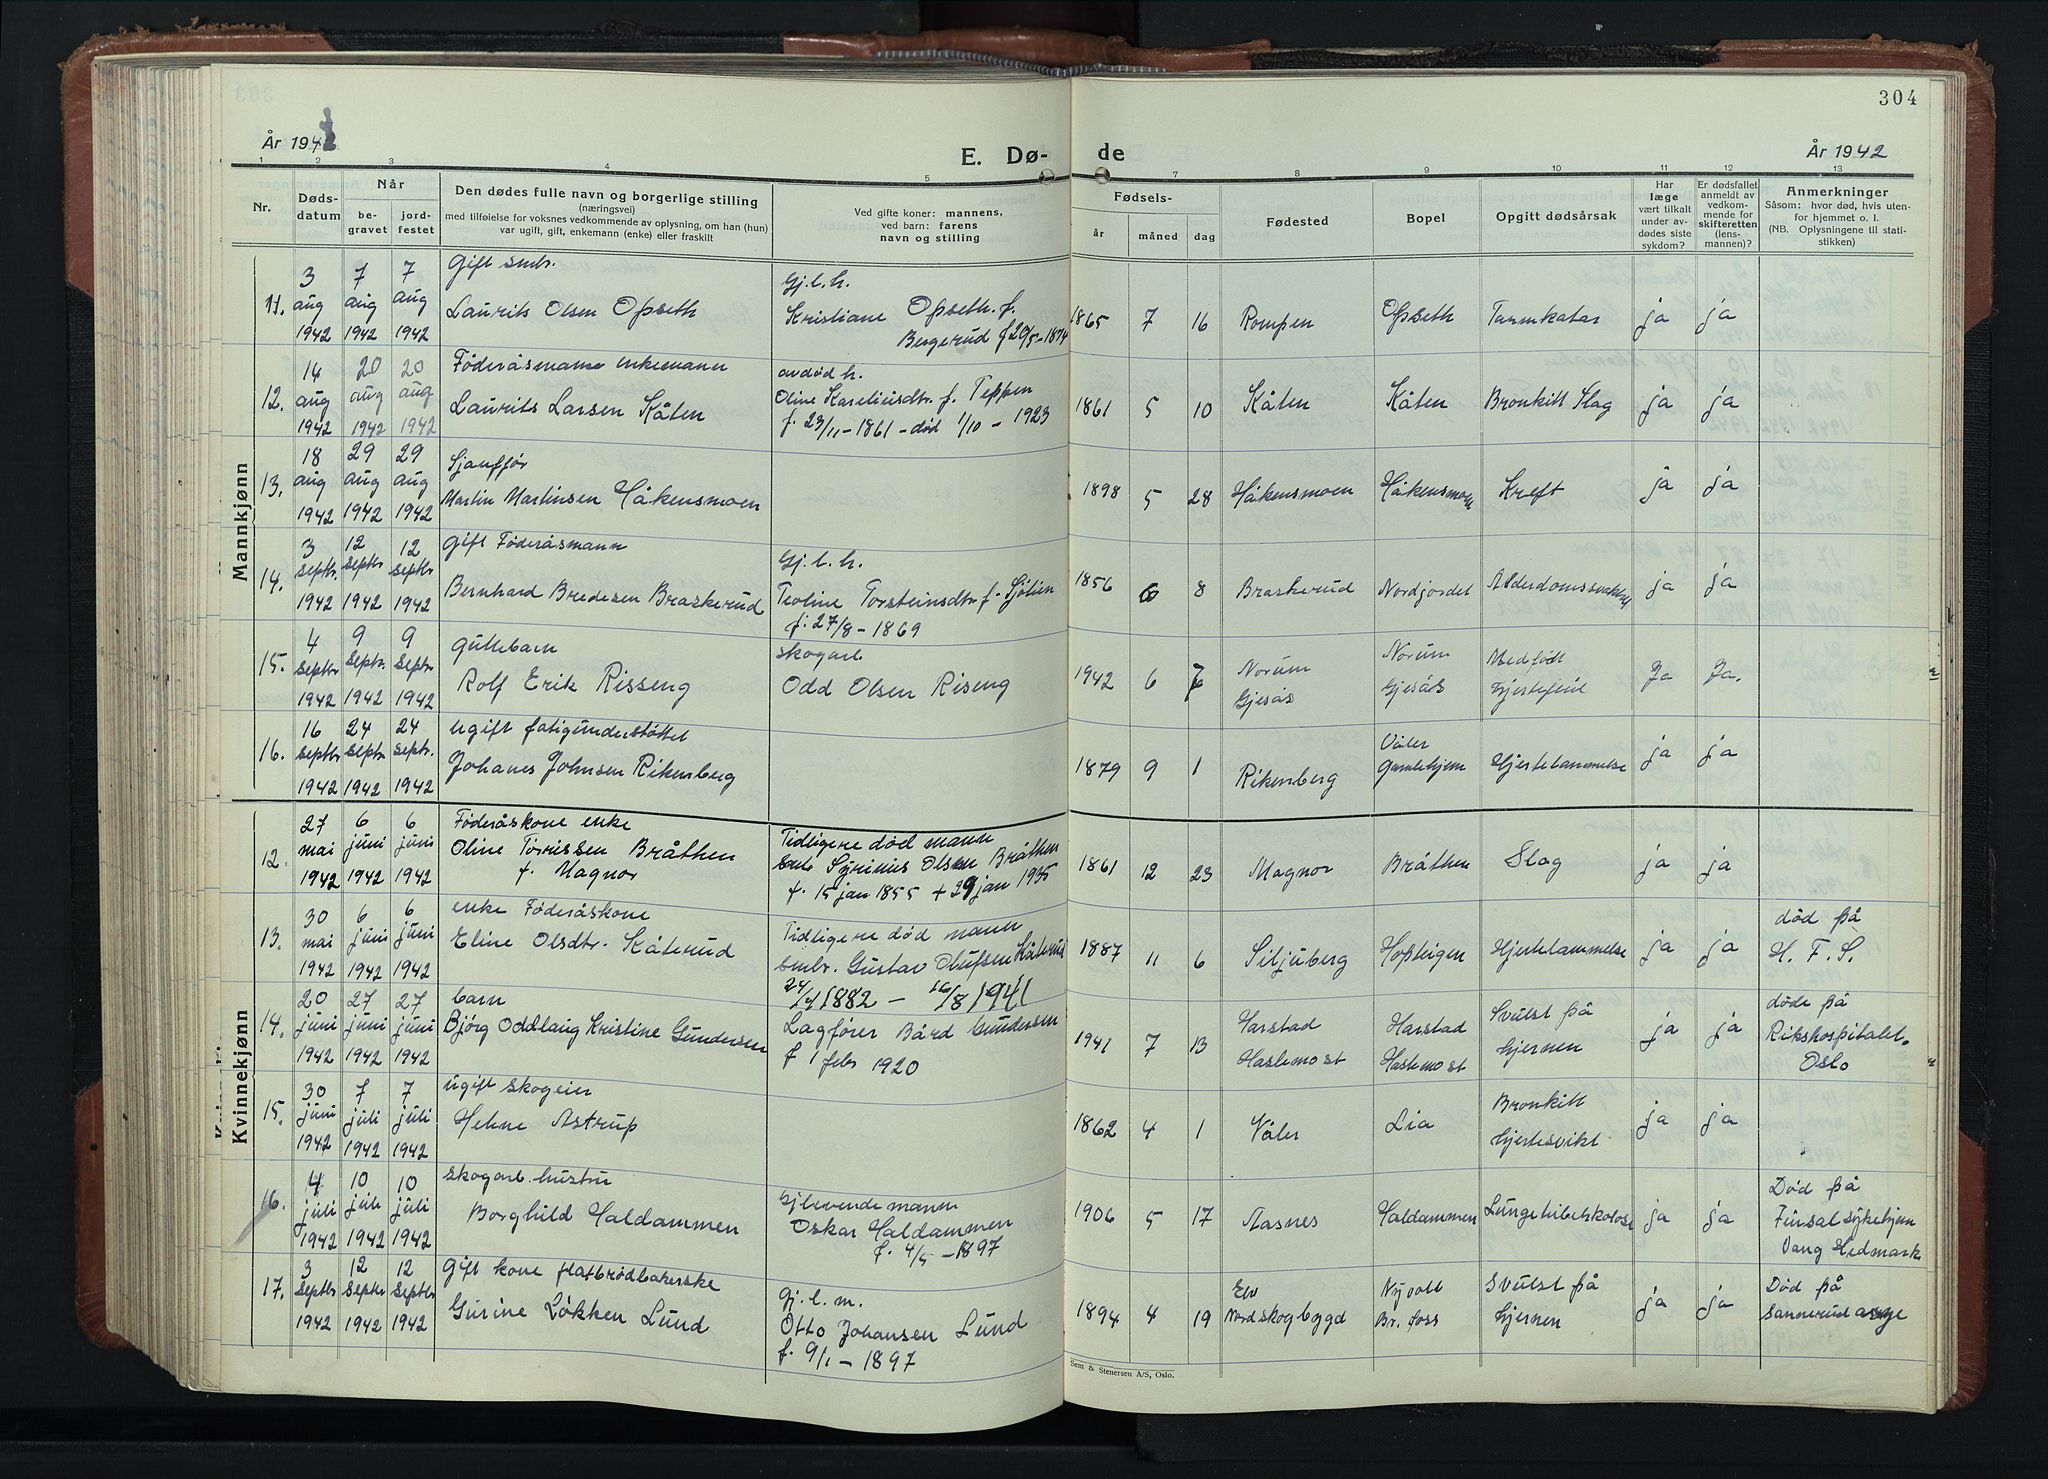 303
304
År 1942
E. Dø-
de
År 1942
1 2 3 4 5 7 8 9 10 11 12 13
Nr.
Døds-
datum
Når
be-
gravet
jord-
festet
Den dødes fulle navn og borgerlige stilling
(næringsvei)
med tilføielse for voksnes vedkommende av oplysning, om han (hun)
var ugift, gift, enkemann (enke) eller fraskilt
Ved gifte koner: mannens,
ved barn: farens
navn og stilling
Fødsels-
år
måned
dag
Fødested
Bopel
Opgitt dødsårsak
Har
læge
vært tilkalt
under av-
dødes siste
sykdom?
Er dødsfallet
anmeldt av
vedkom-
mende for
skifteretten
(lens-
mannen)?
Anmerkninger
Såsom: hvor død, hvis uten-
for hjemmet o. l.
(NB. Oplysningene til stati-
stikken)
Mannkjønn
11. 3 aug 1942 7 aug 1942 7 aug 1942
Gift smbr.
Laurits Olsen Opseth
Gj. l. h.
Kristiane Opseth. f.
Bergerud f 20/5-1874
1865 7 16 Rompen Opseth Tarmkatar ja ja
12. 14 aug 1942 20 aug 1942 20 aug 1942
Føderåsmann enkemann
Laurits Larsen Kåten
avdød h.
Oline Kareliusdtr. f. Teppen
f. 23/11-1861 - død 1/10 - 1923
1861 5 10 Kåten Kåten Bronkitt Slag ja ja
13. 18 aug 1942 29 aug 1942 29 aug 1942
Sjauffør
Martin Martinsen Håkensmoen
1898 5 28 Håkensmoen Håkensmoen Kreft ja ja
14. 3 septbr 1942 12 septbr 1942 12 septbr 1942
gift Føderåsmann
Bernhard Bredesen Braskerud
Gj. l. h.
Teoline Torsteinsdtr f. Sjölien
f. 27/8-1869
1856 6 8 Braskerud Nordjordet Alderdomssvakhet ja ja
15. 4 septbr 1942 9 Septr. 1942 9 Septr 1942
guttebarn
Rolf Erik Risseng
skogarb.
Odd Olsen Riseng
1942 6 7
Norum
Gjesås
Norum
Gjesås
Medfødt
hjertefeil
Ja Ja.
16. 16 septbr 1942 24 septr. 1942 24 septr. 1942
ugift fatigunderstøttet
Johanes Johnsen Rikenberg
1879 9 1 Rikenberg
Våler
Gamlehjem
Hjertelammelse ja ja
Kvinnekjønn
12. 27 mai 1942 6 juni 1942 6 juni 1942
Føderåskone enke
Oline Torrissen Bråthen
f. Magnor
Tidligere død mann
smbr Syrinius Olsen Bråthen
f. 15 jan 1855 + 29 jan 1935
1861 12 23 Magnor Bråthen Slag ja ja
13. 30 mai 1942 6 juni 1942 6 juni 1942
enke Føderåskone
Eline Olsdtr. Kåterud
Tidligere død mann
smbr. Gustav Olufsen Kåterud
1882 - 16/8 1941
1887 11 6 Siljuberg Hopteigen Hjertelammelse ja ja
død på
H. F. S.
14. 20 juni 1942 27 juni 1942 27 juni 1942
barn
Bjørg Oddlaug Kristine Gundersen
Lagfører Bård Gundersen
f 1 febr 1920
1941 7 13
Harstad
Haslemo st
Harstad
Haslemo st
Svulst på
hjernen
ja ja
døde på
Rikshospitalet.
Oslo
15. 30 juni 1942 7 juli 1942 7 juli 1942
ugift skogeier
Helene Astrup
1862 4 1 Våler Lia
Bronkitt
hjertesvikt
ja ja
16. 4 juli 1942 10 juli 1942 10 juli 1942
skogarb. hustru
Borghild Haldammen
Gjlevende mann
Oskar Haldammen
f. 4/5-1897
1906 5 17 Aasnes Haldammen Lungetuberkulose ja ja
Død på
Finsal sykehjem
Vang Hedmark
17. 3 Septbr 1942 12 Septbr 1942 12 Septbr 1942
Gift kone flatbrødbakerske
Gurine Løkken Lund
Gj. l. m.
Otto Johansen Lund
f. 9/1-1897
1894 4 19
Elv
Nordskogbygd
Nyvoll
Br. foss
Svulst på
hjernen
ja ja
Død på
Sannerud asyl
Sem & Stenersen A/S, Oslo.